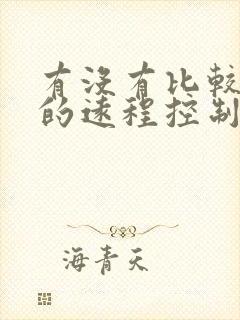 有没有比较
的远程控制
海青天